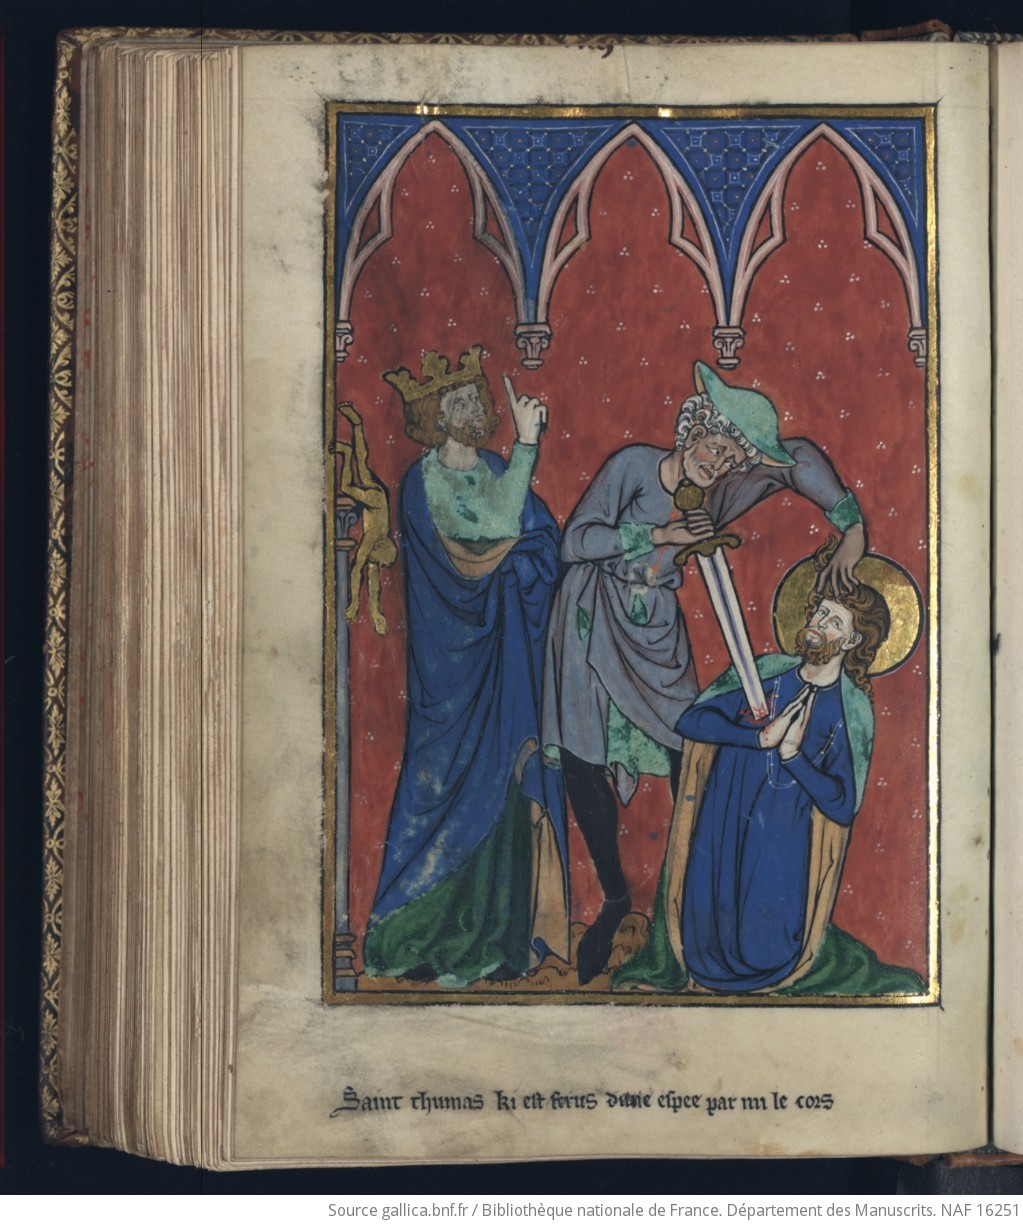 Saint thumas ki est ferus dune espee par mi le cors
Source gallica.bnf.fr / Bibliothèque nationale de France. Département des Manuscrits. NAF 16251